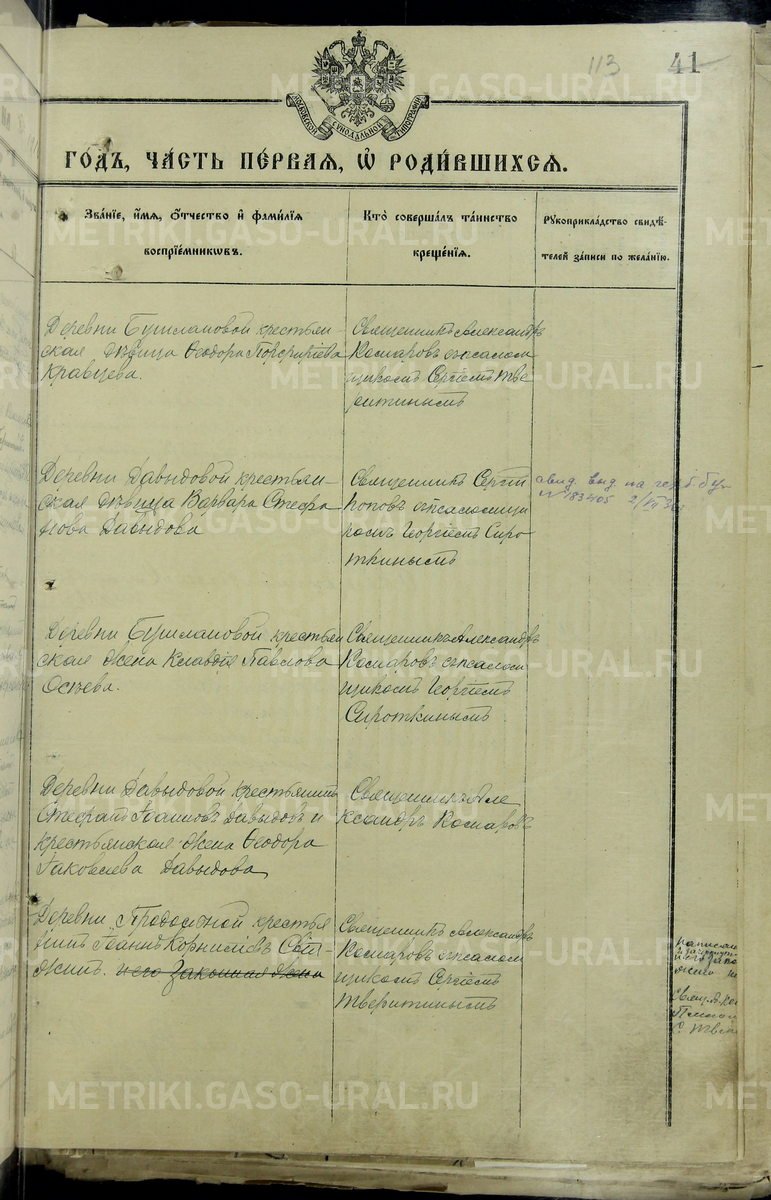 113 41
МОСКОВСКОЙ СѴНОДАЛЬНОЙ ТИПОГРАФІИ
ГО́ДЪ, ЧА́СТЬ ПЕ́РВАЯ, Ѡ҆ РОДИ́ВШИХСЯ.
Зва́нїе, и҆́мя, ѻ҆́тчество и҆ фамѝлїя
воспрїе́мникѡвъ.
Кто̀ соверша́лъ та́инство
креще́нїя.
Рꙋкоприкла́дство свидѣ́-
телей за́писи по жела́нїю.
Деревни Бушлановой крестьян-
ская дѣвица Ѳеодора Порфиріева
Кравцева.
Священникъ Александръ
Комаровъ съ псалом
щикомъ Сергіемъ Тве
ритинымъ
Деревни Давыдовой крестьян-
ская дѣвица Варвара Стефа
нова Давыдова
Священникъ Сергій
Поповъ съ псаломщи
комъ Георгіемъ Сиро
ткинымъ
свид. выд. на
№ 183405
Деревни Бушлановой крестьян
ская жена Клавдія Павлова
Осѣева.
Священникъ Александръ
Комаровъ съ псалом
щикомъ Георгіемъ
Сироткинымъ
Деревни Давыдовой крестьянинъ
Стефанъ Іоанновъ Давыдовъ и
крестьянская жена Ѳеодора
Іаковлева Давыдова
Священникъ Але
ксандръ Комаровъ
Деревни Продольной крестья
нинъ Іоаннъ Корниліевъ
и его законная жена
Священникъ Александръ
Комаровъ съ псалом
щикомъ Сергіемъ
Тверитинымъ
METRIKI.GASO-URAL.RU